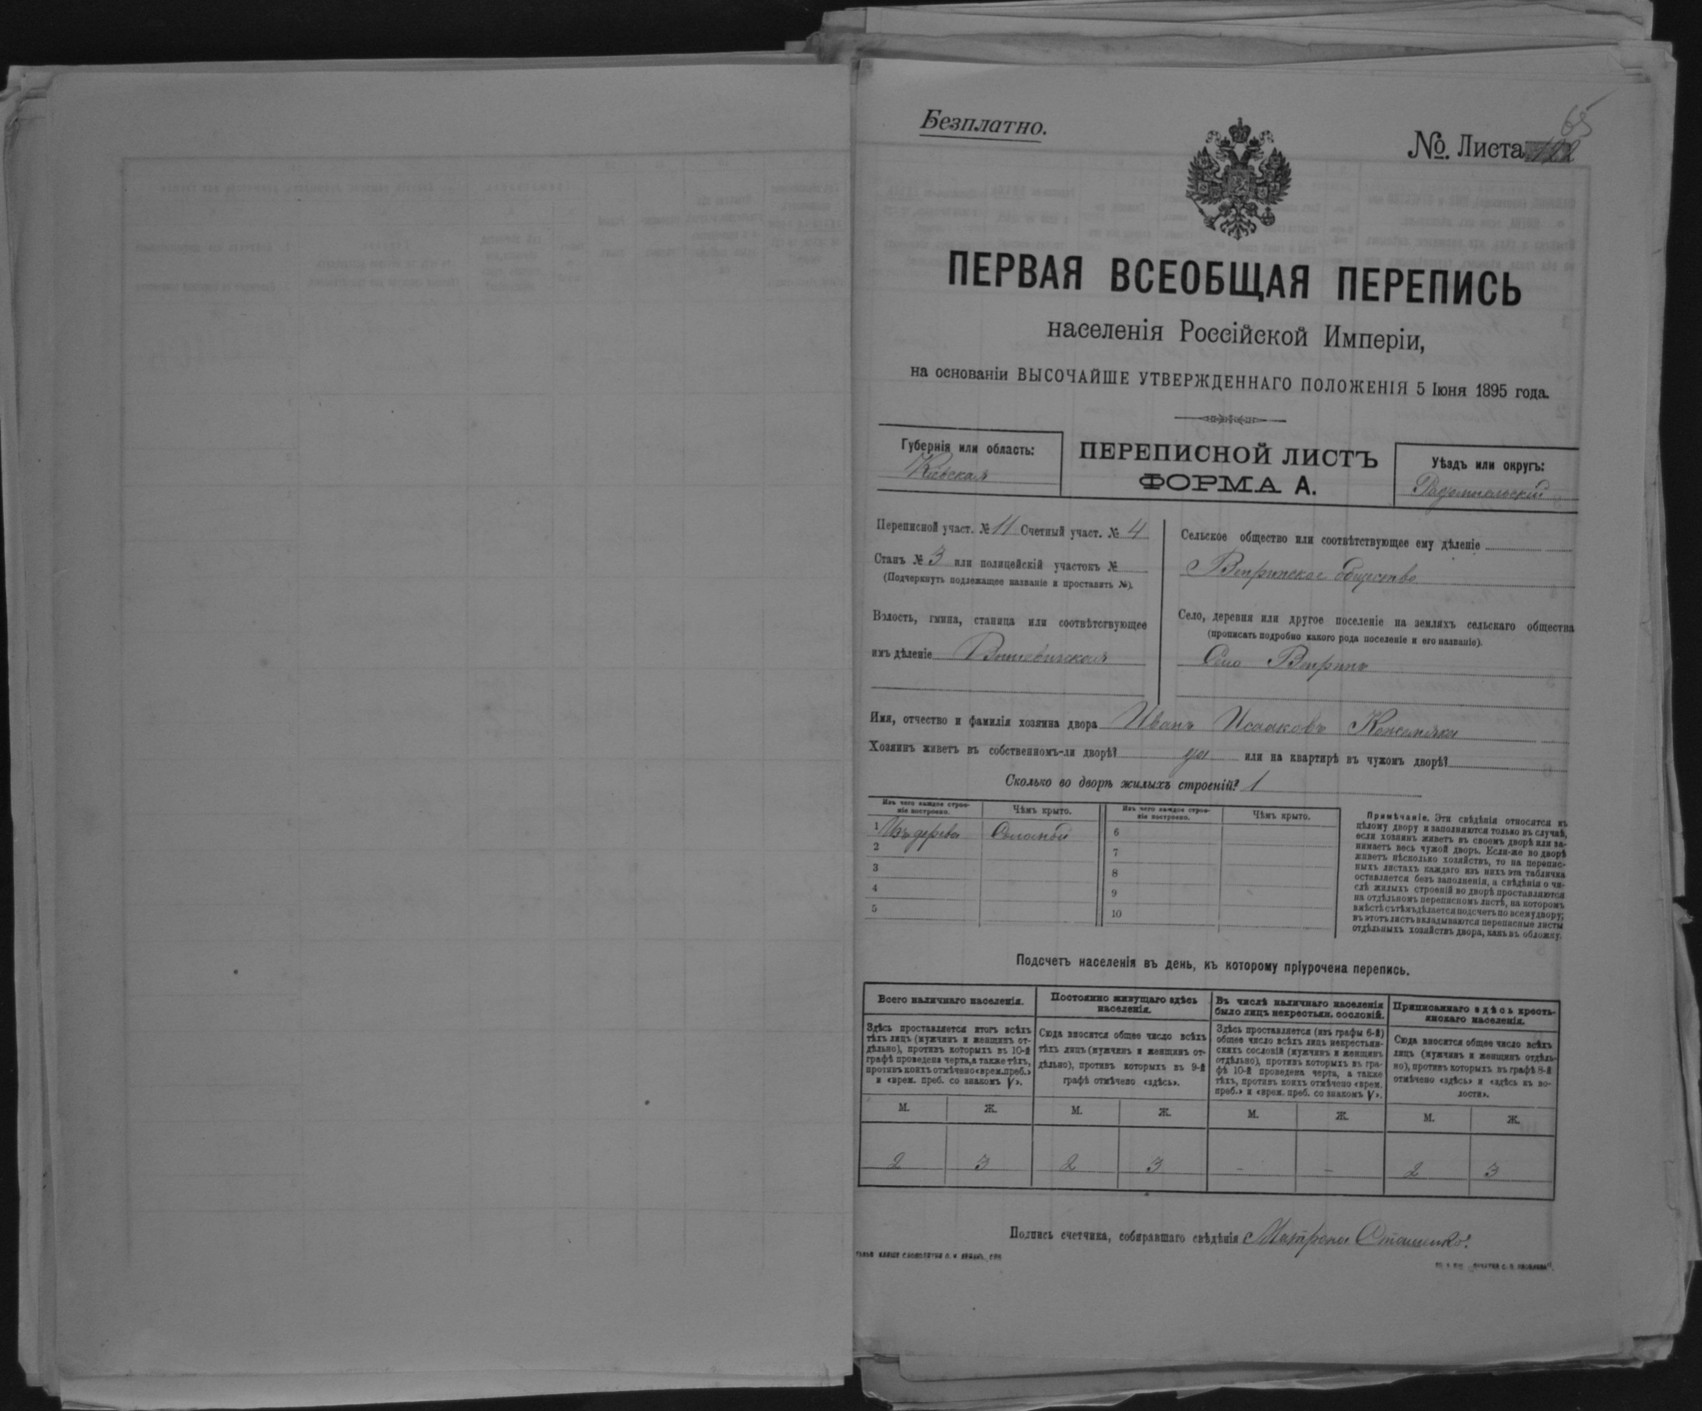 Безплатно.
№. Листа
65
ПЕРВАЯ ВСЕОБЩАЯ ПЕРЕПИСЬ
населенія Россійской Имперіи,
на основаніи ВЫСОЧАЙШЕ УТВЕРЖДЕННАГО ПОЛОЖЕНІЯ 5 Іюня 1895 года.
Губернія или область:
Кіевская
ПЕРЕПИСНОЙ ЛИСТЪ
ФОРМА А.
Уѣздъ или округъ:
Радомысльскій
Переписной участ. № 11 Счетный участ. № 4
Станъ № 3 или полицейскій участокъ №
(Подчеркнуть подлежащее названіе и проставить №).
Волость, гмина, станица или соотвѣтствующее
имъ дѣленіе Вышевичская
Сельское общество или соотвѣтствующее ему дѣленіе
Вепринское общество
Село, деревня или другое поселеніе на земляхъ сельскаго общества
(прописать подробно какого рода поселеніе и его названіе).
Село Вепринъ
Имя, отчество и фамилія хозяина двора Иванъ Исааковъ
Хозяинъ живетъ въ собственномъ-ли дворѣ? да или на квартирѣ въ чужомъ дворѣ?
Сколько во дворѣ жилыхъ строеній? 1
Изъ чего каждое строе-
ніе построено.
Чѣмъ крыто.
Изъ чего каждое строе-
ніе построено.
Чѣмъ крыто.
1 Изъ дерева Соломой
2
3
4
5
6
7
8
9
10
Примѣчаніе. Эти свѣдѣнія относятся къ
цѣлому двору и заполняются только въ случаѣ,
если хозяинъ живетъ въ своемъ дворѣ или за-
нимаетъ весь чужой дворъ. Если-же во дворѣ
живетъ нѣсколько хозяйствъ, то на перепис-
ныхъ листахъ каждаго изъ нихъ эта табличка
оставляется безъ заполненія, а свѣдѣнія о чи-
слѣ жилыхъ строеній во дворѣ проставляются
на отдѣльномъ переписномъ листѣ, на которомъ
вмѣстѣ съ тѣмъ дѣлается подсчетъ по всему двору;
въ этотъ листъ вкладываются переписные листы
отдѣльныхъ хозяйствъ двора, какъ въ обложку.
Подсчетъ населенія въ день, къ которому пріурочена перепись.
Всего наличнаго населенія.
Здѣсь проставляется итогъ всѣхъ
тѣхъ лицъ (мужчинъ и женщинъ от-
дѣльно), противъ которыхъ въ 10-й
графѣ проведена черта, а также тѣхъ,
противъ коихъ отмѣчено «врем. преб.»
и «врем. преб. со знакомъ V».
Постоянно живущаго здѣсь
населенія.
Сюда вносится общее число всѣхъ
тѣхъ лицъ (мужчинъ и женщинъ от-
дѣльно), противъ которыхъ въ 9-й
графѣ отмѣчено «здѣсь».
Въ числѣ наличнаго населенія
было лицъ некрестьян. сословій.
Здѣсь проставляется (изъ графы 6-й)
общее число всѣхъ лицъ некрестьян-
скихъ сословій (мужчинъ и женщинъ
отдѣльно), противъ которыхъ въ гра-
фѣ 10-й проведена черта, а также
тѣхъ, противъ коихъ отмѣчено «врем.
преб.» и «врем. преб. со знакомъ V».
Приписаннаго здѣсь кресть-
янскаго населенія.
Сюда вносится общее число всѣхъ
лицъ (мужчинъ и женщинъ отдѣль-
но), противъ которыхъ въ графѣ 8-й
отмѣчено «здѣсь» и «здѣсь въ во-
лости».
М. Ж. М. Ж. М. Ж. М. Ж.
2 3 2 3 - - 2 3
Подпись счетчика, собиравшаго свѣдѣнія